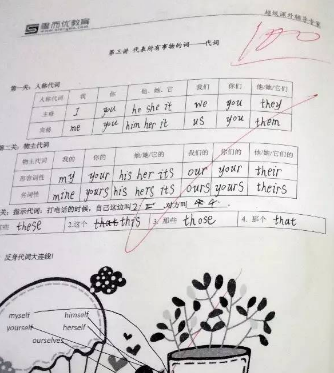 塾而优教育
100
第三讲 代表所有事物的词——代词
第一关:人称代词
人称代词 我 你 他, 她, 它 我们 你们 他/她/它们
主格 I you he she it we you they
宾格 me you him her it us you them
第二关:物主代词
物主代词 我的 你的 他/她/它的 我们的 你们的 他/她/它们的
形容词性 my your his her its our your their
名词性 mine yours his hers its ours yours theirs
关:指示代词:打电话的时候,自己这边叫
these 2.这个 that this 3. 那些 those 4. 那个 that
反身代词大连线!
myself himself
yourself herself
ourselves